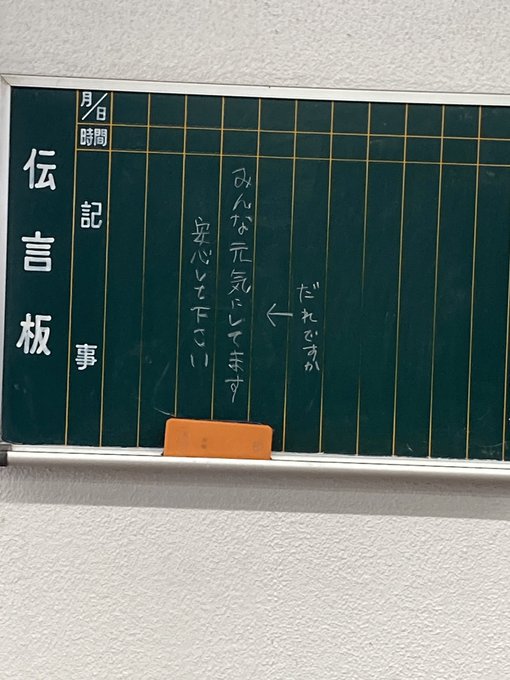 伝言板
月/日
時間
記事
だれですか
←
みんな元気にしてます
安心して下さい